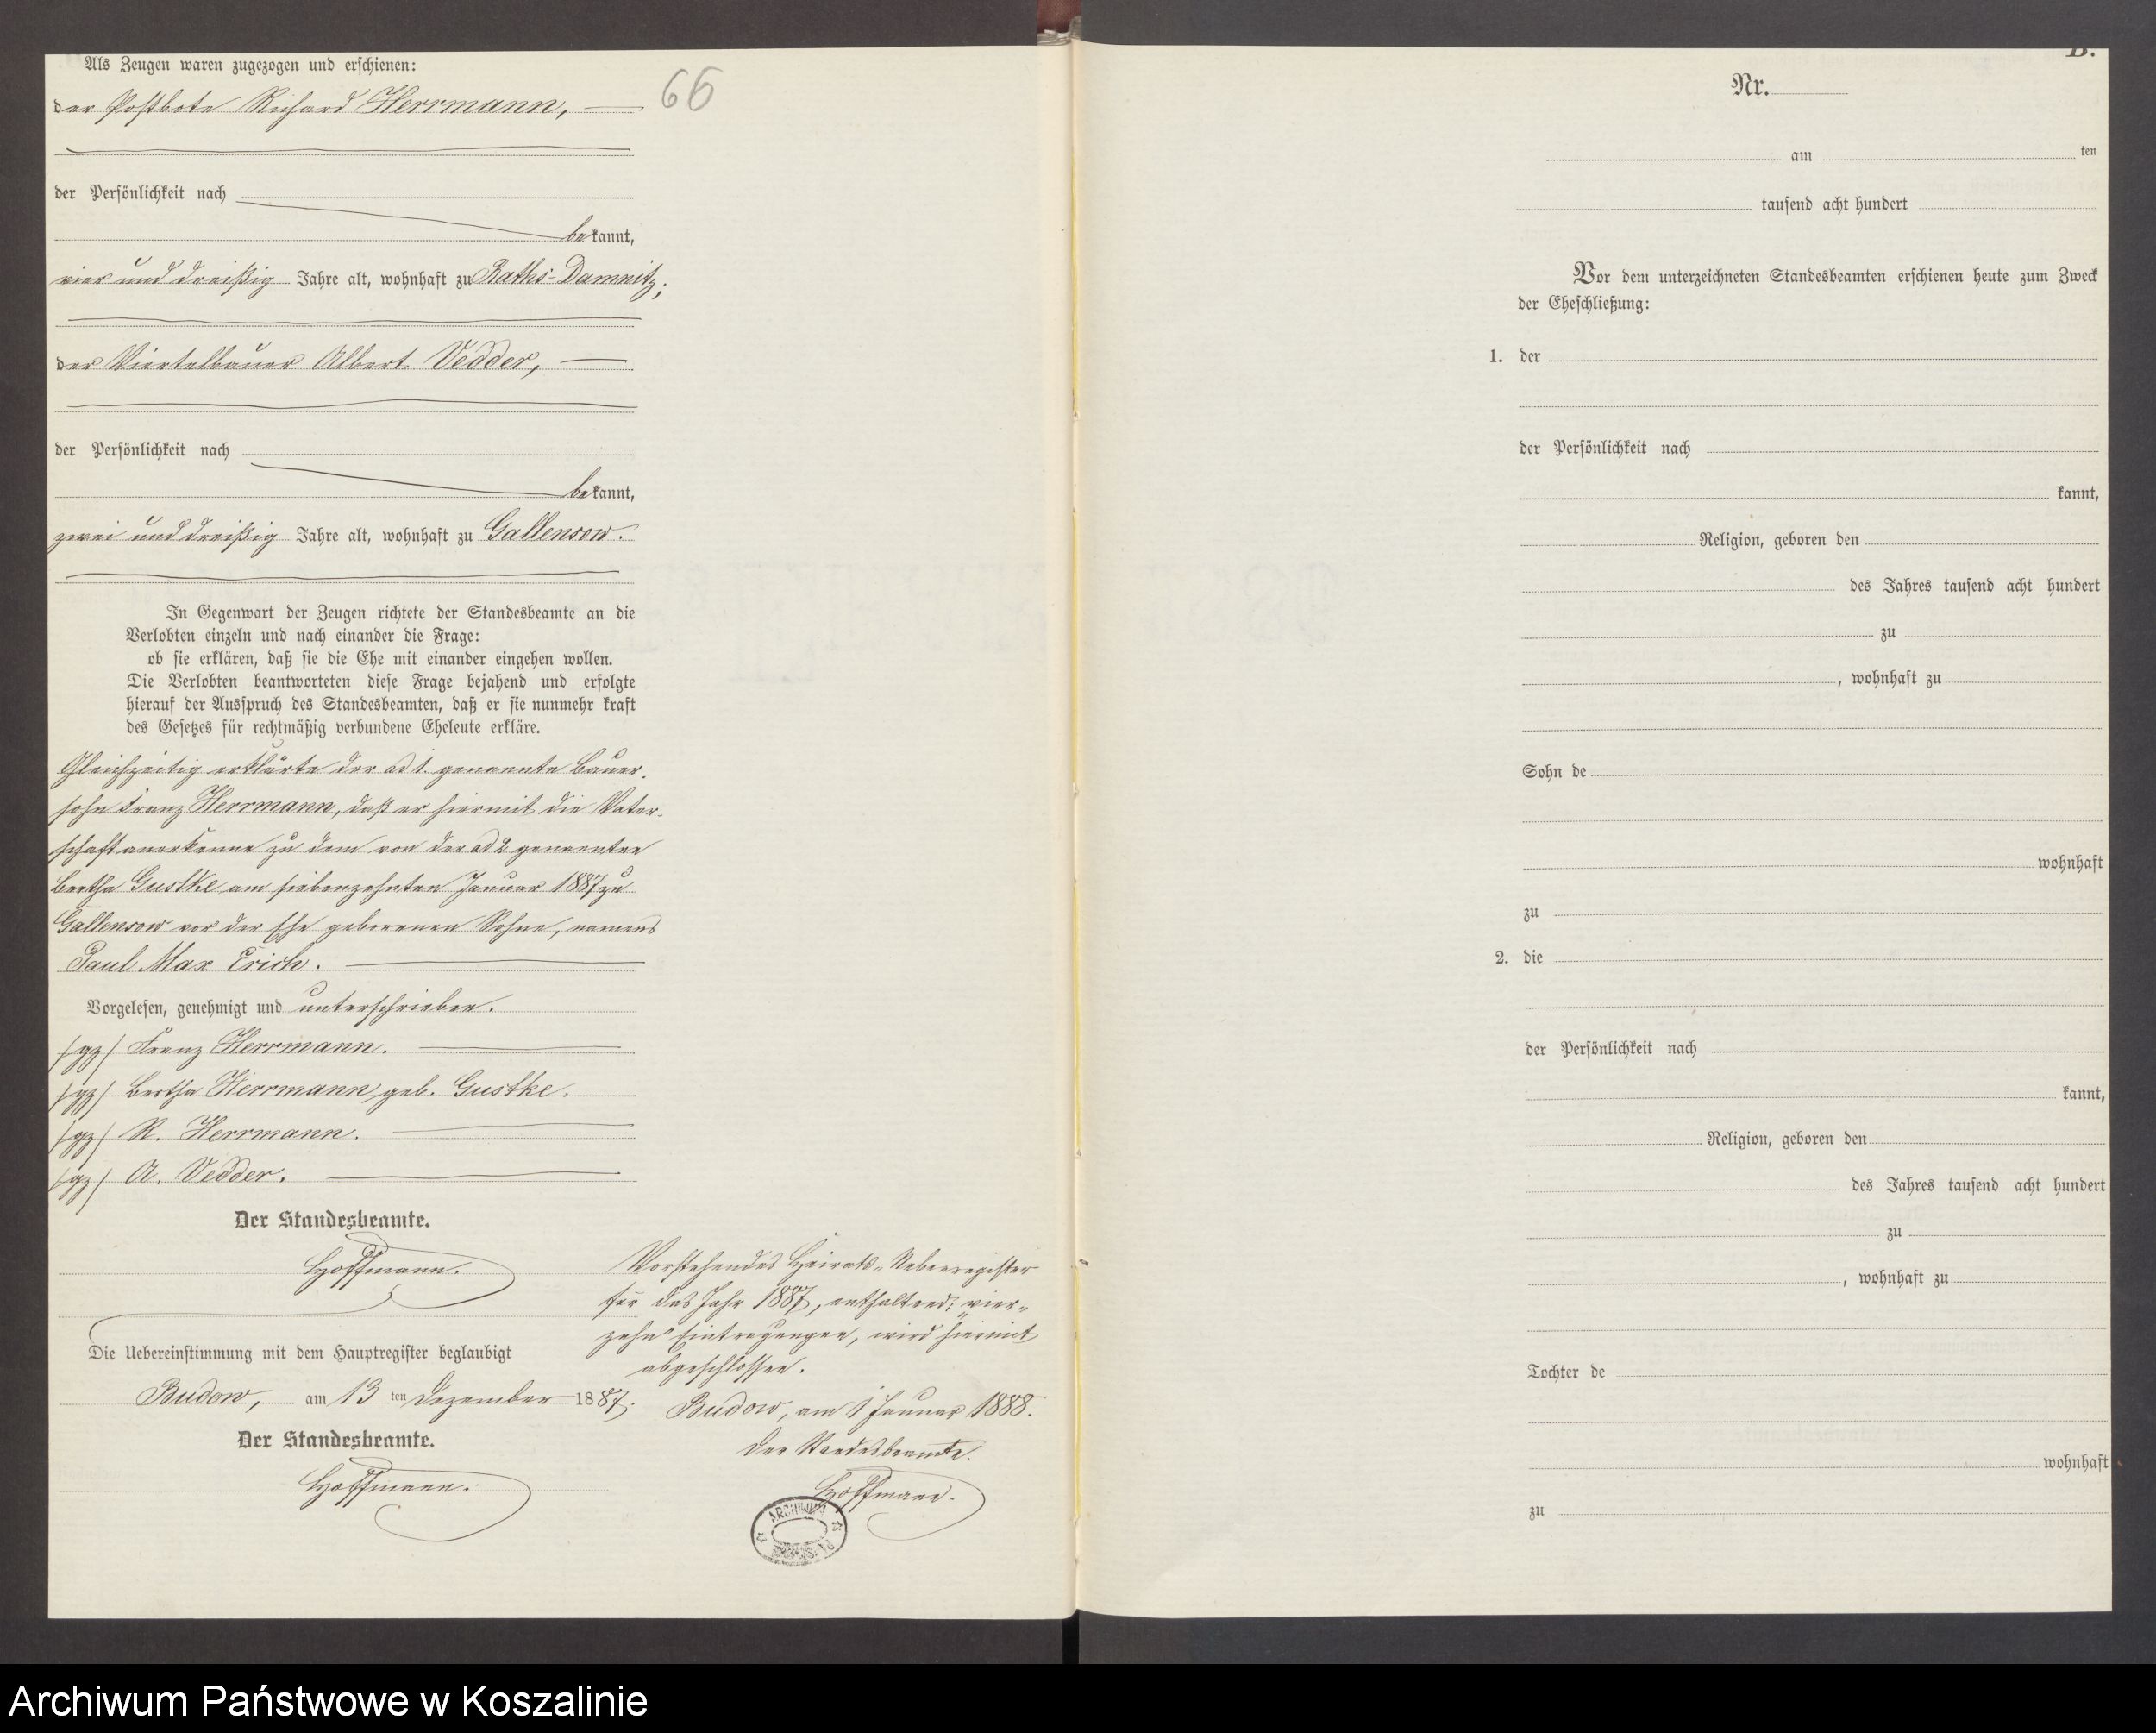 Als Zeugen waren zugezogen und erschienen:
66
der Postbote Richard Herrmann,
der Persönlichkeit nach
bekannt,
vier und dreißig Jahre alt, wohnhaft zu Raths-Damnitz;
der Viertelbauer Albert Vedder,
der Persönlichkeit nach
bekannt,
zwei und dreißig Jahre alt, wohnhaft zu Gallensow.
In Gegenwart der Zeugen richtete der Standesbeamte an die
Verlobten einzeln und nach einander die Frage:
ob sie erklären, daß sie die Ehe mit einander eingehen wollen.
Die Verlobten beantworteten diese Frage bejahend und erfolgte
hierauf der Ausspruch des Standesbeamten, daß er sie nunmehr kraft
des Gesetzes für rechtmäßig verbundene Eheleute erkläre.
Gleichzeitig erklärte der ad 1. genannte Bauer-
sohn Franz Herrmann, daß er hiermit die Vater-
schaft anerkenne zu dem von der ad 2 genannten
Bertha Gustke am siebenzehnten Januar 1887 zu
Gallensow vor der Ehe geborenen Sohne, namens
Paul Max Erich.
Vorgelesen, genehmigt und unterschrieben.
/gz/ Franz Herrmann.
/gz/ Bertha Herrmann geb. Gustke.
/gz/ R. Herrmann.
/gz/ A. Vedder.
Der Standesbeamte.
Hoffmann.
Die Uebereinstimmung mit dem Hauptregister beglaubigt
Budow, am 13 ten Dezember 1887.
Der Standesbeamte.
Hoffmann.
Vorstehendes Heirats-Nebenregister
für das Jahr 1887, enthaltend: „vier-
zehn" Eintragungen, wird hiermit
abgeschlossen.
Budow, am 1 Januar 1888.
Der Standesbeamte.
Hoffmann.
ARCHIWUM
B.
Nr.
am ten
tausend acht hundert
Vor dem unterzeichneten Standesbeamten erschienen heute zum Zweck
der Eheschließung:
1. der
der Persönlichkeit nach
kannt,
Religion, geboren den
des Jahres tausend acht hundert
zu
, wohnhaft zu
Sohn de
wohnhaft
zu
2. die
der Persönlichkeit nach
kannt,
Religion, geboren den
des Jahres tausend acht hundert
zu
, wohnhaft zu
Tochter de
wohnhaft
zu
Archiwum Państwowe w Koszalinie